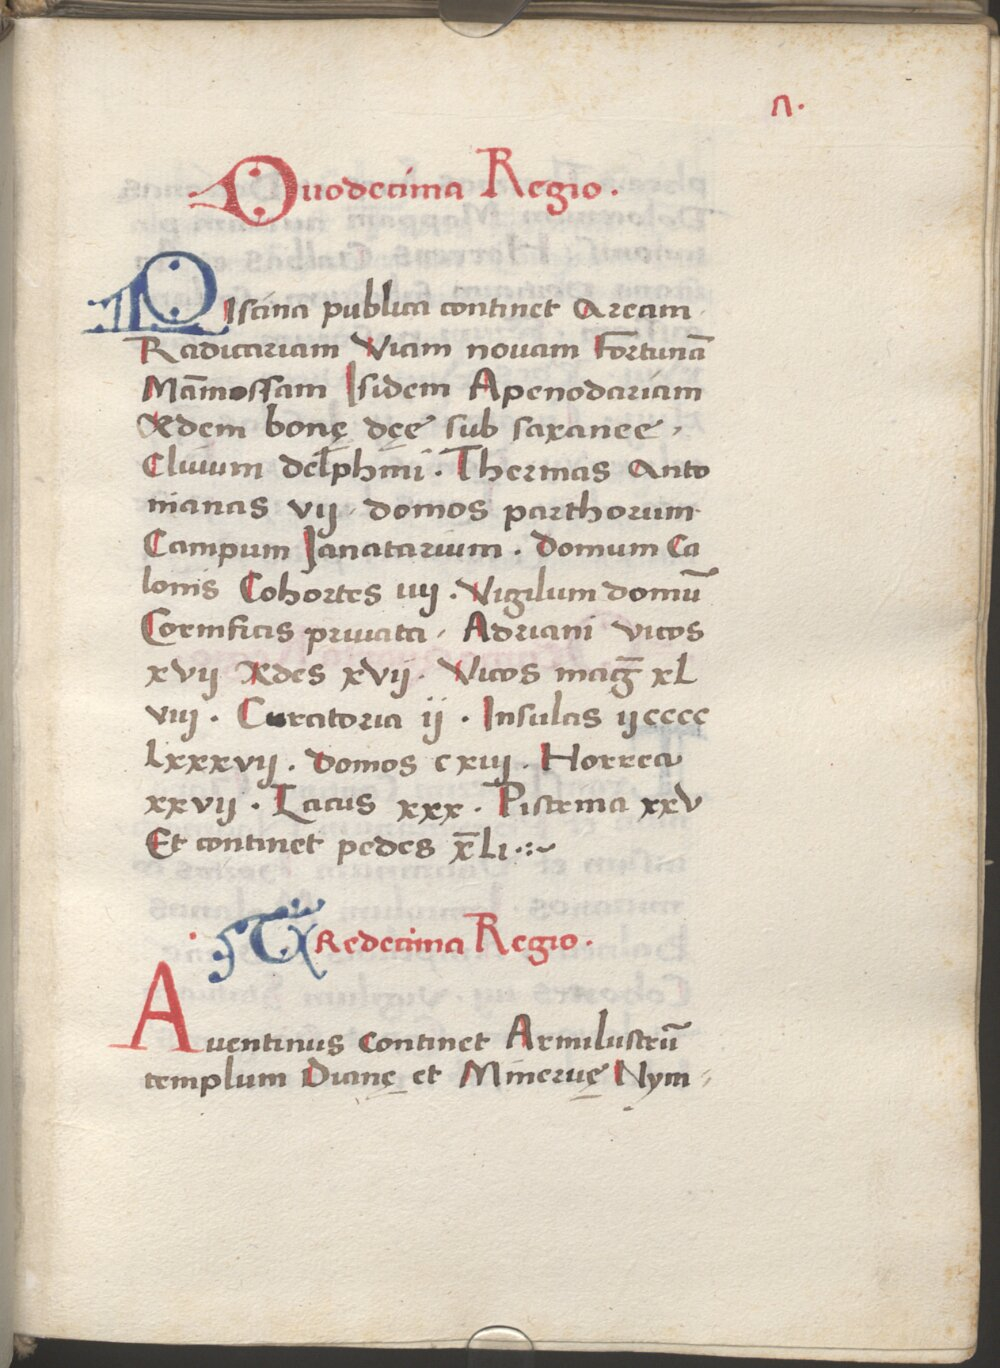 n.
Duodecima Regio.
Piscina publica continet Aream
Radicariam Viam novam Fortunā
Mām̄ossam Isidem Apenodariam
Aedem bonę dęe sub saxanee,
Clivium delphini. Thermas Anto
nianas vij domos parthorum
Campum Janatarium. domum Ca
lonis Cohortes iiij. Vigilum domū
Cornificis privata, Adriani vicos
xvij Aedes xvij. Vicos mag̅ xL
viij. Curatoria ij. Insulas ijcccc
Lxxxvij. domos cxiij. Horrea
xxvij. Lacus xxx. Pistrina xxv
Et continet pedes x̄Li
Tredecima Regio.
Aventinus continet Armilustrū
templum Dianę et Minervę Nym-